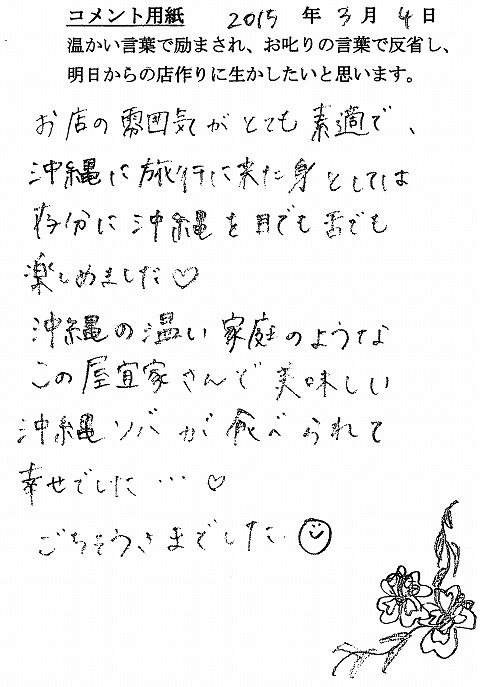 コメント用紙 2015 年 3 月 4 日
温かい言葉で励まされ、お叱りの言葉で反省し、
明日からの店作りに生かしたいと思います。
お店の雰囲気がとても素適で、
沖縄に旅行に来た身としては
存分に沖縄を目でも舌でも
楽しめました♡
沖縄の温い家庭のような
この屋宜家さんで美味しい
沖縄ソバが食べられて
幸せでした…♡
ごちそうさまでした